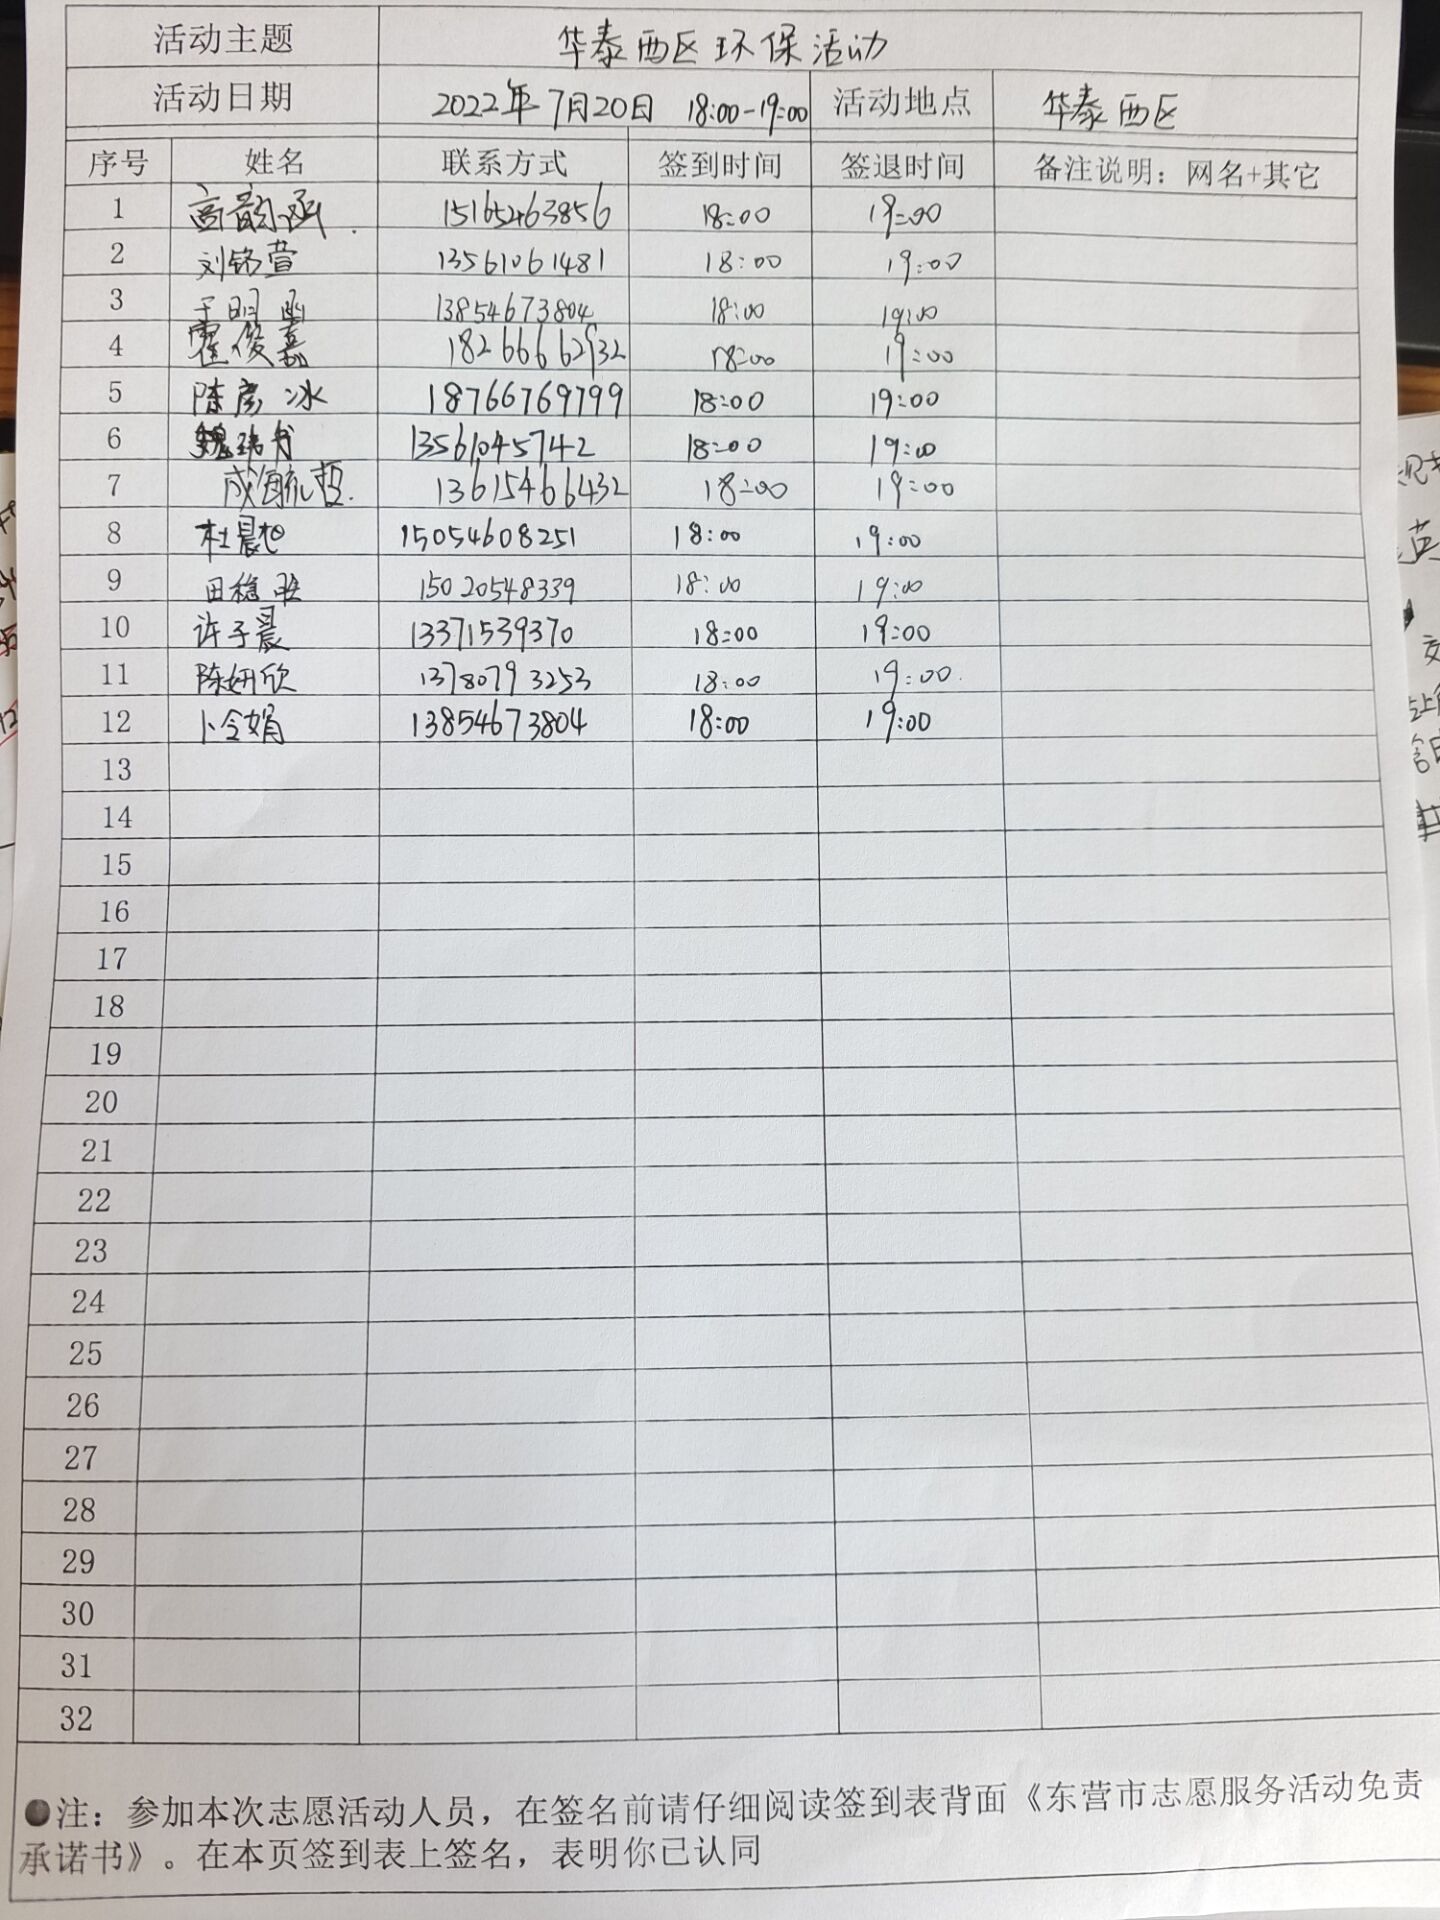 活动主题 华泰西区环保活动
活动日期 2022年7月20日 18:00-19:00 活动地点 华泰西区
序号 姓名 联系方式 签到时间 签退时间 备注说明：网名+其它
1 高韵涵 15165463856 18:00 19:00
2 刘铭萱 13561061481 18:00 19:00
3 于明函 13854673804 18:00 19:00
4 霍俊嘉 18266662932 18:00 19:00
5 陈彦冰 18766769799 18:00 19:00
6 魏玮书 13561045742 18:00 19:00
7 成海 哲 13615466432 18:00 19:00
8 杜晨旭 15054608251 18:00 19:00
9 田稳 15020548339 18:00 19:00
10 许子晨 13371539370 18:00 19:00
11 陈妍欣 13780793253 18:00 19:00
12 卜令娟 13854673804 18:00 19:00
13
14
15
16
17
18
19
20
21
22
23
24
25
26
27
28
29
30
31
32
●注：参加本次志愿活动人员，在签名前请仔细阅读签到表背面《东营市志愿服务活动免责
承诺书》。在本页签到表上签名，表明你已认同